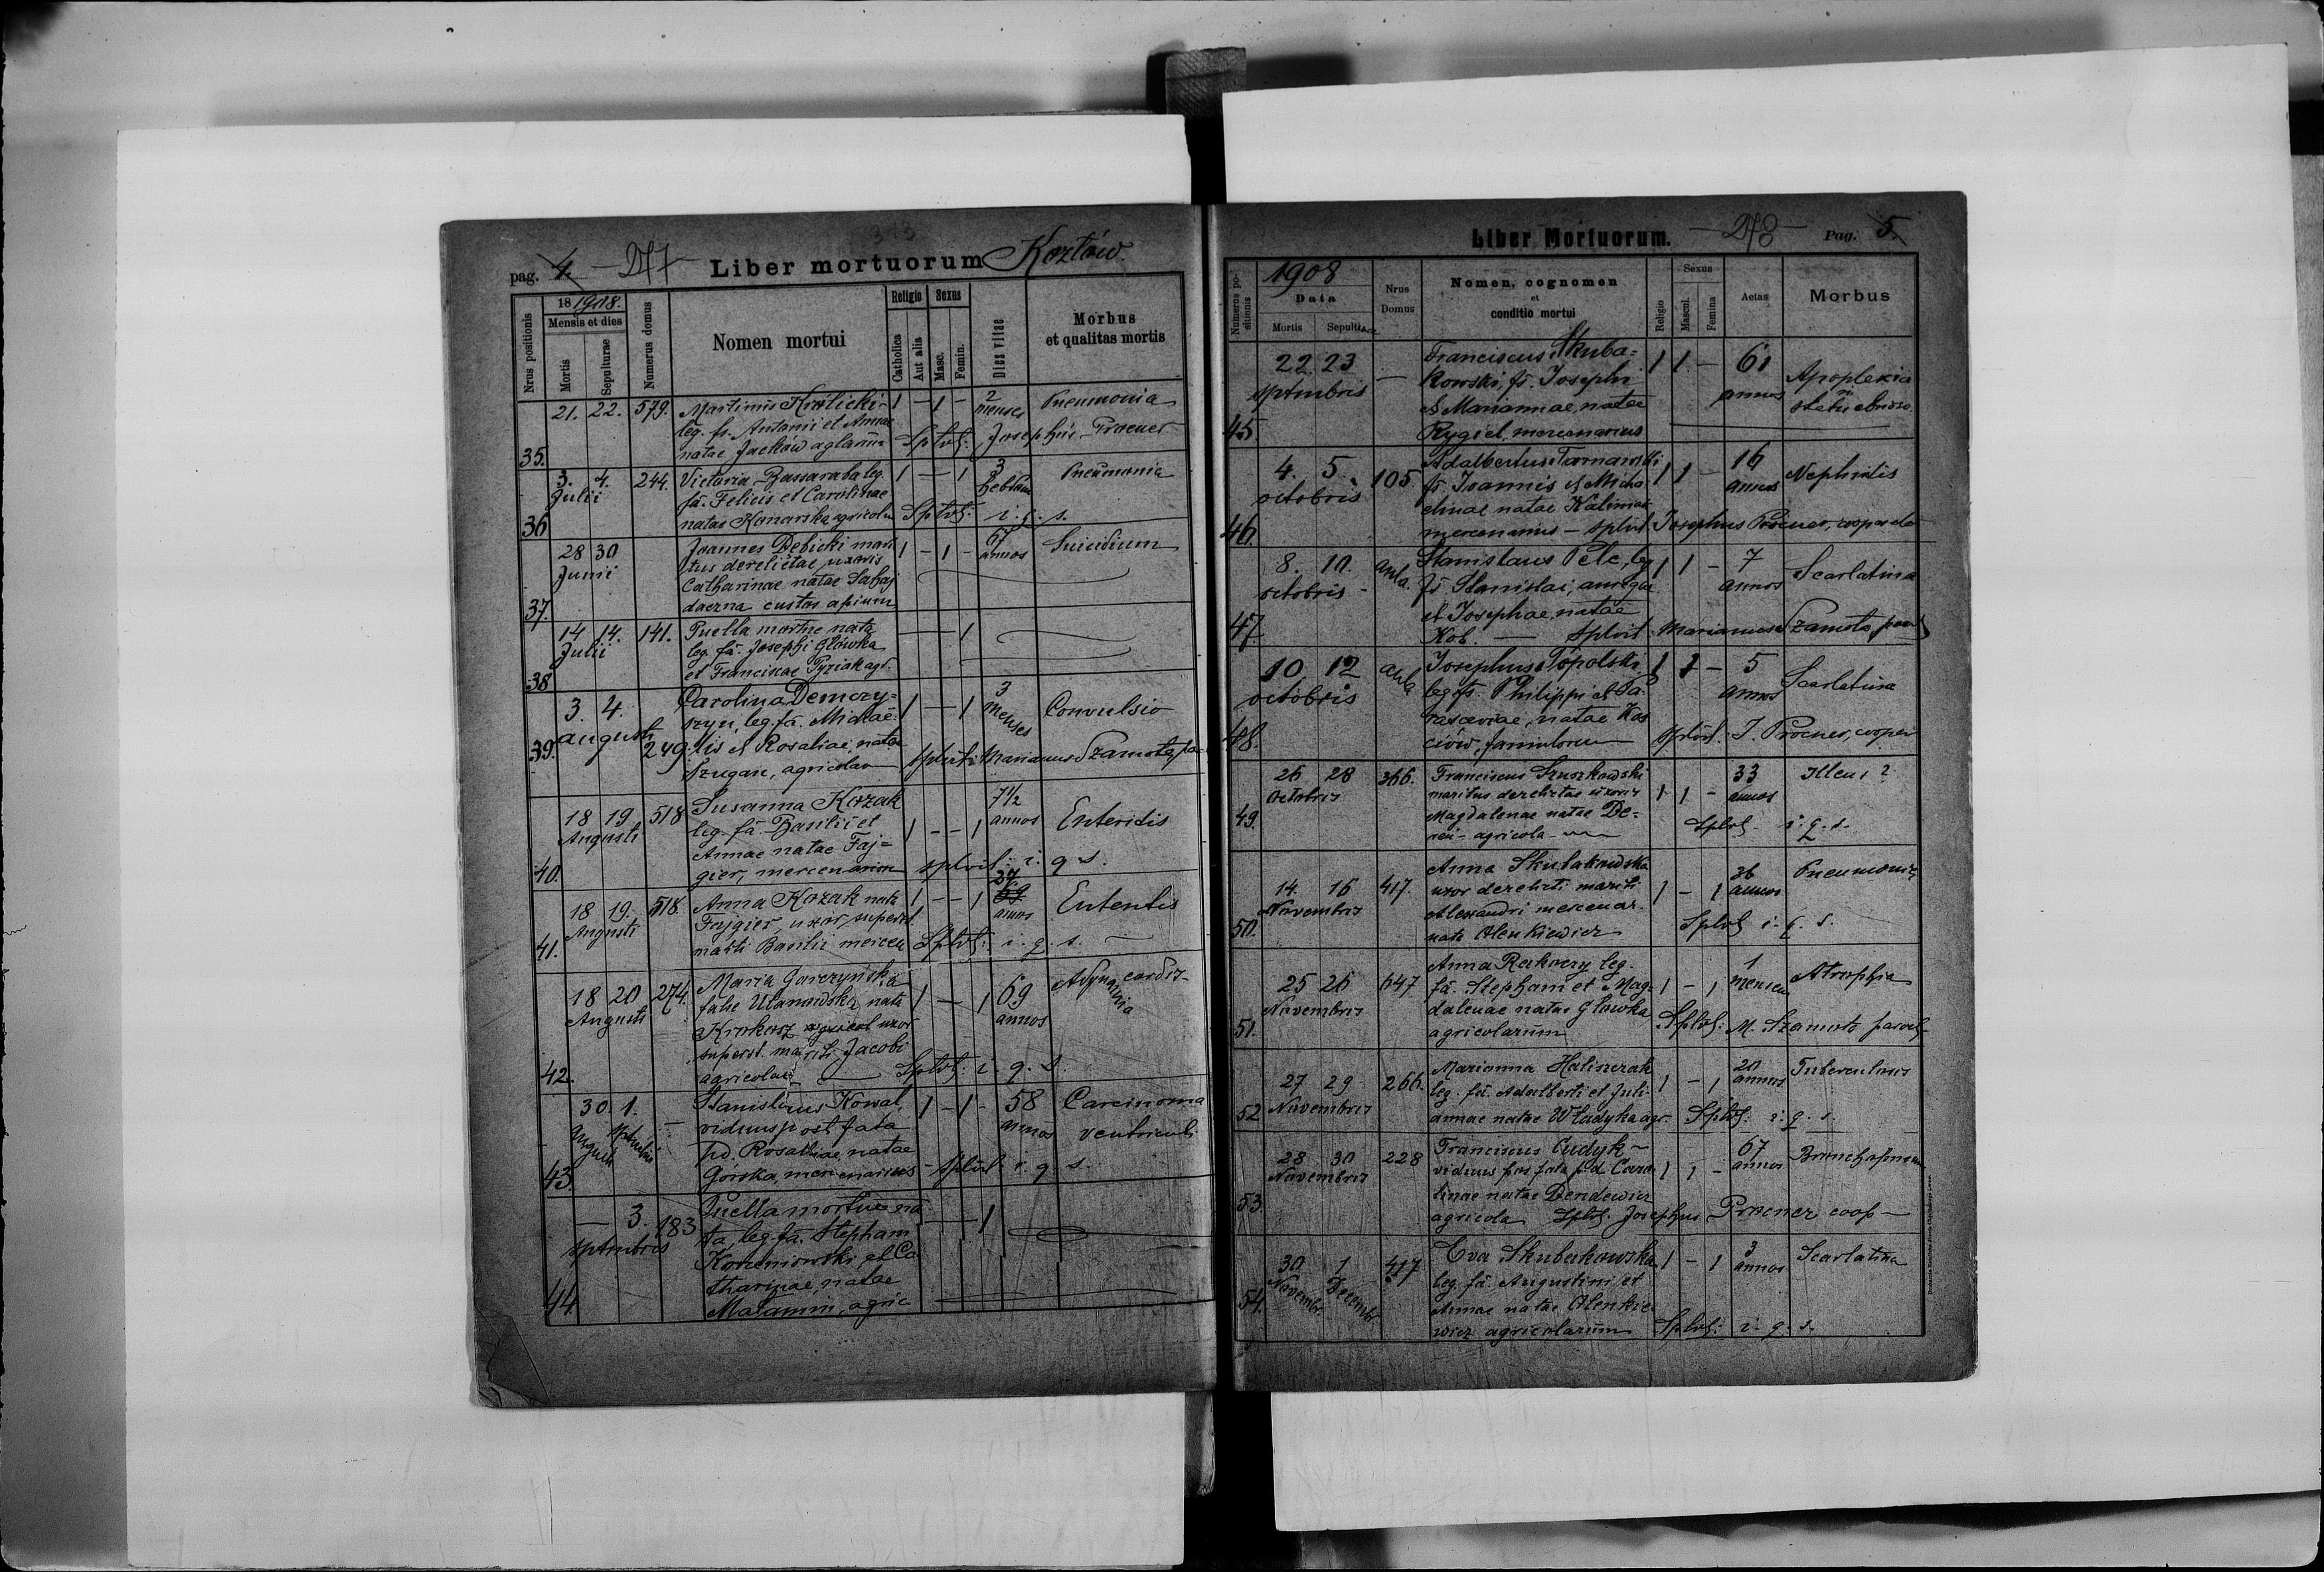 pag. 4. - 277 - Liber mortuorum Kozłów.
Nrus positionis
18 1908.
Mensis et dies
Mortis
Sepulturae
Numerus domus
Nomen mortui
Religio
Catholica
Aut alia
Sexus
Masc.
Femin.
Dies vitae
Morbus
et qualitas mortis
35. 21. 22. 579. Martinus Krolicki 1 - 1 - 2 menses Pneumonia
leg. fs. Antonii et Annae
natae Jacków Spvlt: Josephus Procner
36 3. 4. Julii 244. Victoria Bassaraba leg. 1 - 1 3 Pneumonia
fa. Felicis et Carolinae
natae Konarska agricolar Spvlt: i. q. s.
37. 28 30 Junii Joannes Debicki mari 1 - 1 - 67 annos Suicidium
tus derelictae uxoris
Catharinae natae Sahaj
daczna custos apium
38 14 14. Julii 141. Puella mortue nata - 1
leg. fa. Josephi Główka
et Franciscae Pyziak agr.
39. 3. 4. augusti 249. Carolina Demczy= 1 - 1 3 menses Convulsio
szyn, leg. fa. Michaë-
lis et Rosaliae, natae
Szugan, agricolar splvit: Marianus Szamota, pa
40. 18 19 Augusti 518 Susanna Kozak 1 - - 1 7 1/2 annos Enteridis
leg. fa. Basilii et
Annae natae Faj=
gier, mercenarior splvit: i. q. s.
41. 18 19. Augusti 518. Anna Kozak nata 1 - - 1 27 69 annos Ententis
Fajgier, uxor superst.
mariti Basilii mercen Splvt: i. q. s.
42. 18 20 Augusti 274. Maria Gorczyńska 1 - 1 69 annos Adynamia cordis
false Ulanowska nata
Krokosz agricol uxor
superst. mariti Jacobi
agricolae Splvt: i. q. s.
43. 30. 1. Augusti septembris - Stanislaus Kowal, 1 - 1 - 58 annos Carcinoma ventriculi
viduus post fata
pd. Rosaliae, natae
Górska, mercenarius - splvt. i. q. s.
44 - 3. septmbris 183 Puella mortue na - 1
ta, leg. fa. Stephani
Koneniowski, et Ca
tharinae, natae
Matamin, agric
Liber Mortuorum. - 278 - Pag. 5.
Numerus positionis
1908
Data
Mortis
Sepulturae
Nrus
Domus
Nomen, cognomen
et
conditio mortui
Religio
Sexus
Mascul.
Femina
Aetas
Morbus
45 22. 23 septmbris - Franciscus Skuba= 1 1 - 61 annos Apoplexia
kowski, fs. Josephi in
et Mariannae, natae statu ebrioso.
Rygiel, mercenarius
46. 4. 5. octobris 105. Adalbertus Tarnawski 1 1 - 16 annos Nephritis
fs. Joannis et Micha
elinae natae Kaliniak
mercenarius - splvit Josephus Procner, cooperator
47 8. 10. octobris - aula. Stanislaus Pelc, leg 1 1 - 7 annos Scarlatina
fs. Stanislai,
et Josephae, natae
Kob. - splvit Marianus Szamota, par
48. 10 12 octobris aula Josephus Topolski 1 1 - 5 annos Scarlatina
leg. fs. Philippi et Pa
rasceviae, natae Kos
ciów, famulorum splvit: J. Procner, cooper
49. 26 28 Octobris 366. Franciscus Szuszkowski 1 1 - 33 annos Illeus ?
maritus derelictae uxoris
Magdalenae natae De=
reń - agricola Splvt. i. q. s.
50. 14. 16 Novembris 417. Anna Skubakowska 1 - 1 36 annos Pneumonia
uxor derelicti mariti
Alexandri mercenar.
nata Olenkiewicz Splvt i. q. s.
51. 25 26 Novembris 647 Anna Rakoczy leg. 1 - 1 1 mensem Atrophia
fa. Stephani et Mag
dalenae natae Główka
agricolarum Splvt: M. Szamota paroch.
52 27 29 Novembris 266. Marianna Haliszczak 1 - 1 20 annos Tuberculosis
leg. fa. Adalberti et Juli-
annae natae Władyka agr. Splvt. i. q. s.
53. 28 30 Novembris 228 Franciscus Cudyk 1 1 - 67 annos Bronchopneum
viduus pos fata pd. Caro
linae natae Dendewicz
agricola Splvt. Josephus Procner coop -
54. 30 1 Novembr. Decembr 417 Eva Skubakowska 1 - 1 3 annos Scarlatina
leg. fa. Augustini et
Annae natae Olenkie
wicz agricolarum Splvt: i. q. s.